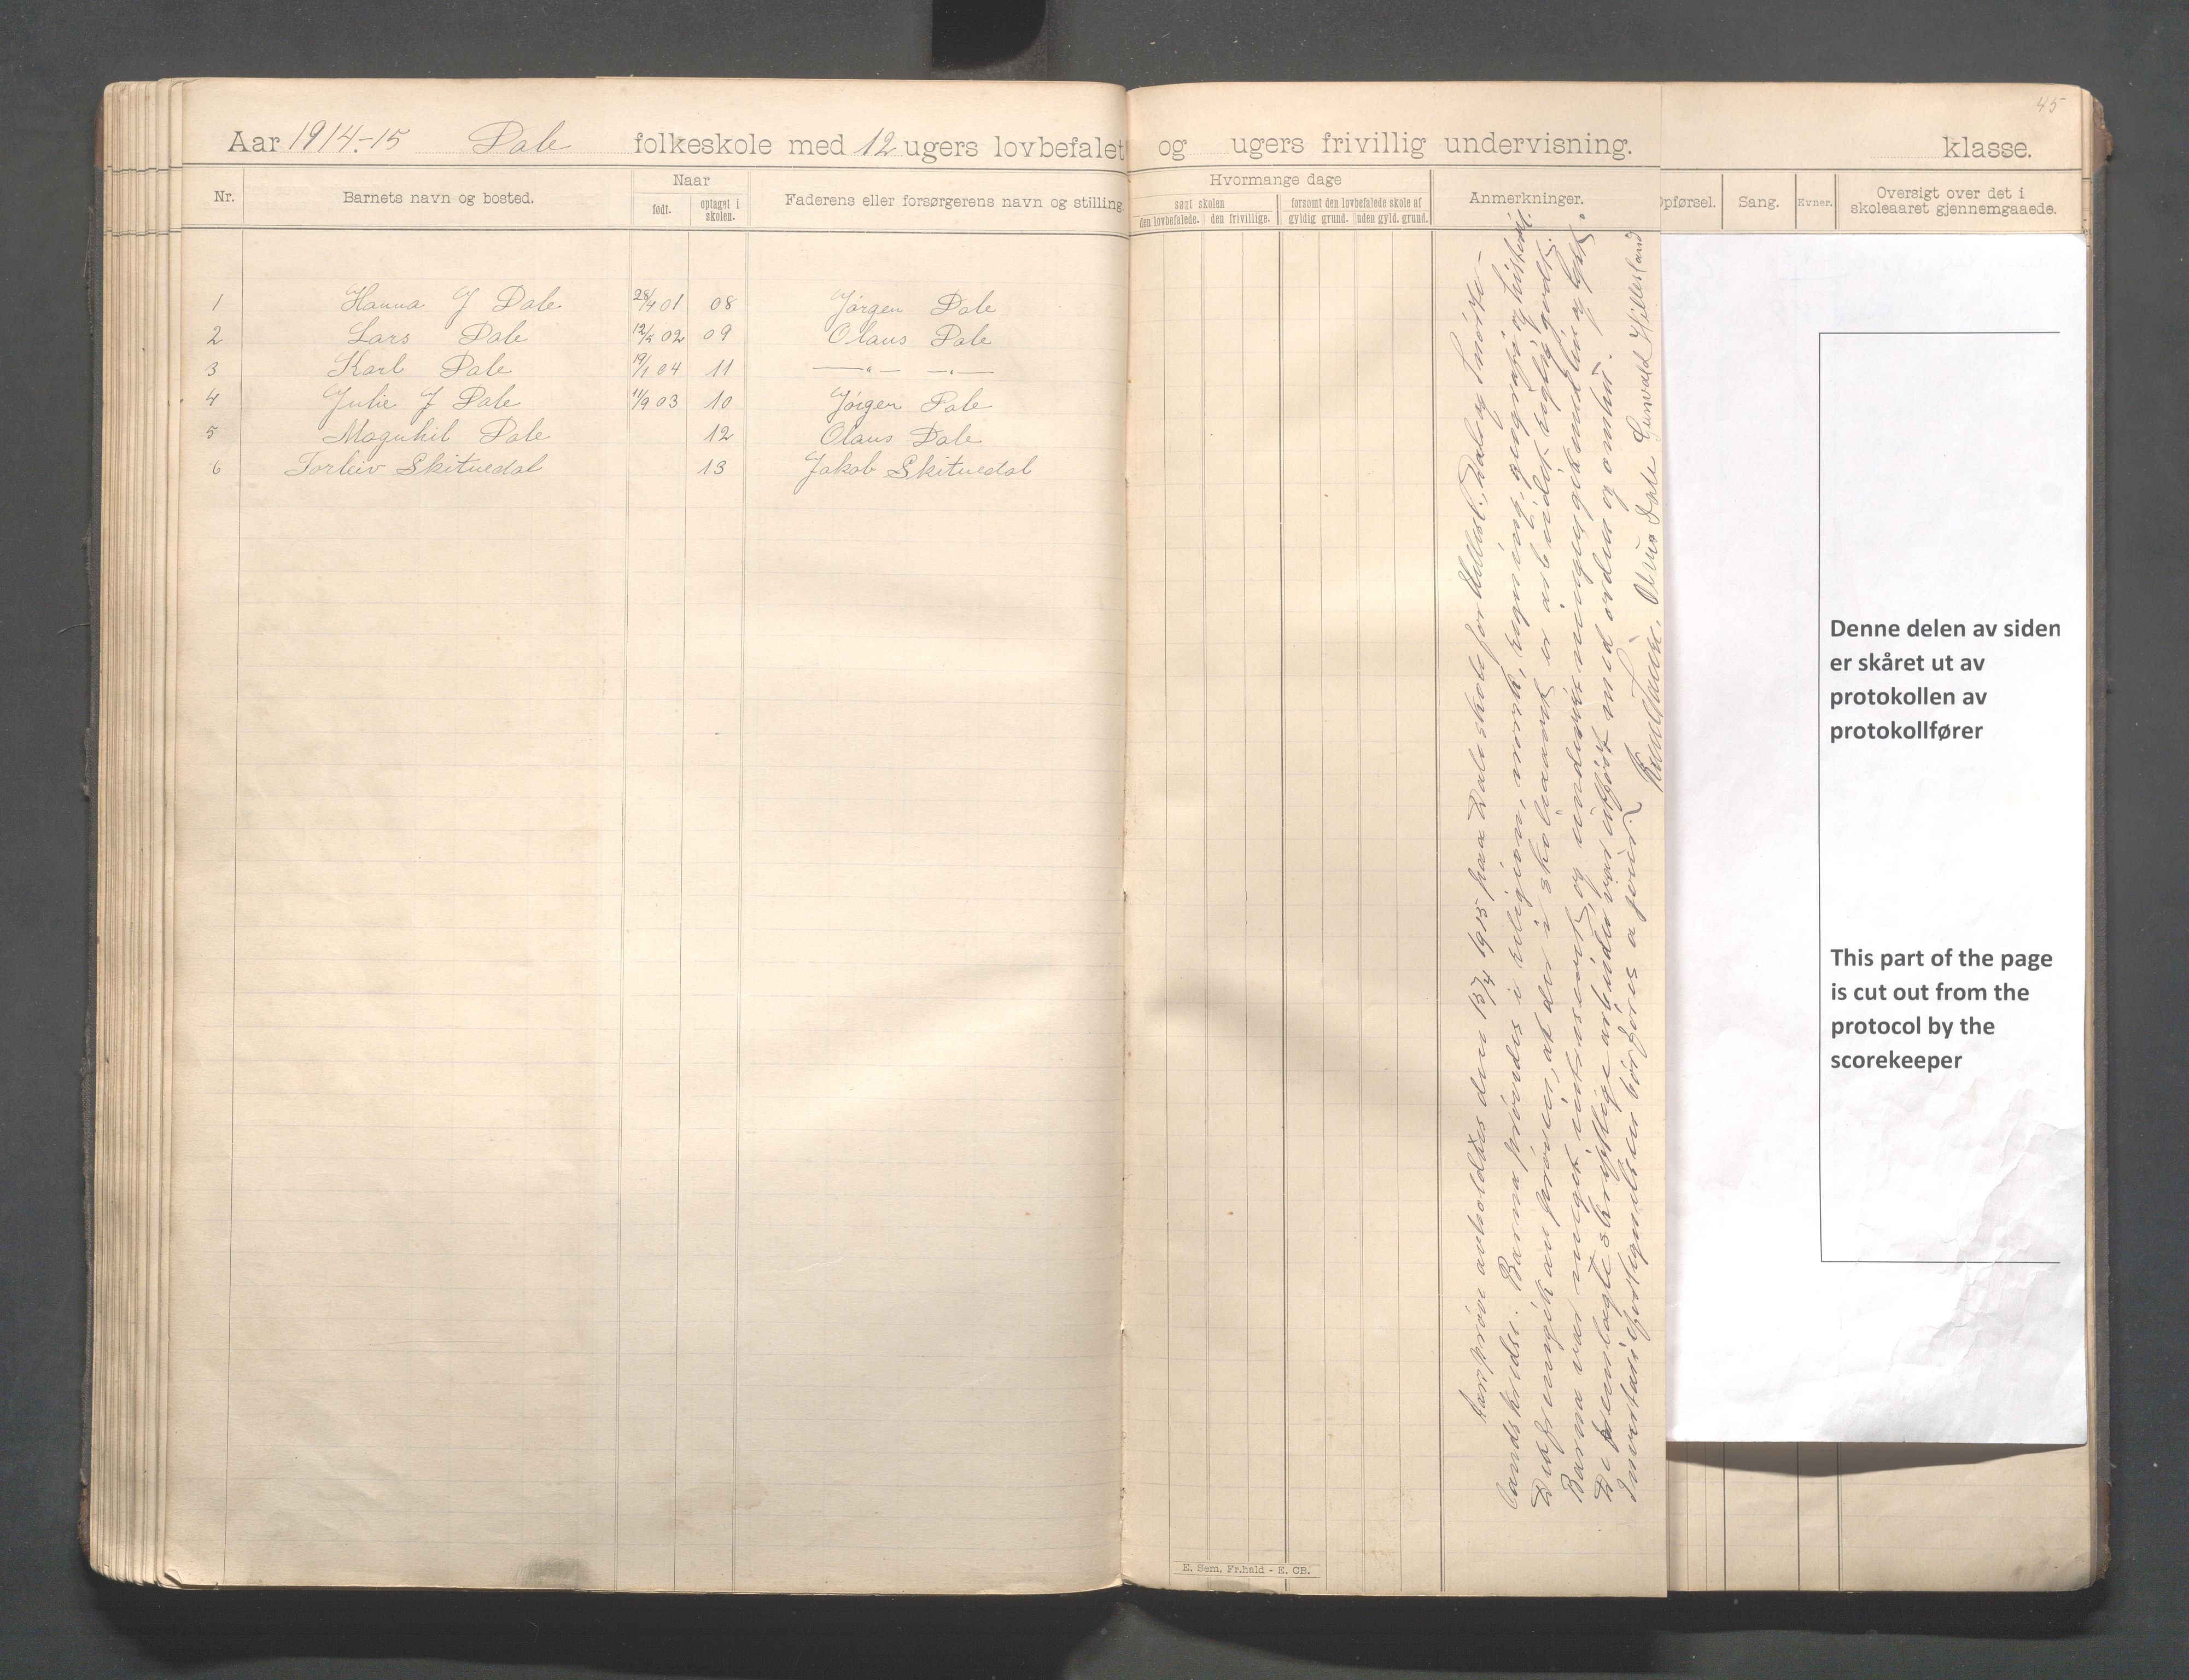 45
Aar 1914.-15 Dale folkeskole med 12 ugers lovbefalet og ugers frivillig undervisning. klasse.
Nr.
Barnets navn og bosted.
Naar
født.
optaget i skolen.
Faderens eller forsørgerens navn og stilling
Hvormange dage
søgt skolen
den lovbefalede. den frivillige.
forsømt den lovbefalede skole af
gyldig grund. uden gyld. grund.
Anmerkninger.
Opførsel. Sang. Evner.
Oversigt over det i
skoleaaret gjennemgaaede.
1 Hanna J Dale 28/4 01 08 Jørgen Dale
2 Lars Dale 12/5 02 09 Olaus Dale
3 Karl Dale 19/1 04 11 —"— —"—
4 Julie J Dale 11/9 03 10 Jørgen Dale
5 Magnhil Dale 12 Olaus Dale
6 Torleiv Skitnedal 13 Jakob Skitnedal
Aarsprøve avholdtes den 15/4 1915 paa Dale skole for Dale og
landskredse. Barna prøvdes i religion, norsk, regning, geografi og historie.
Det fremgik av prøven, at der i skoleaaret er arbeidet rigtig godt.
Barna var meget interessert, og undervisningen gik med liv og lyst.
De fremlagte skriftlige arbeider var utført med orden og omhu.
Dale Gunvald Hillesland
Denne delen av siden
er skåret ut av
protokollen av
protokollfører
This part of the page
is cut out from the
protocol by the
scorekeeper
E. Sem, Fr.hald - E. CB.